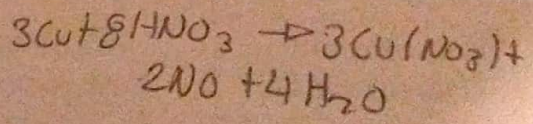 3Cu+8HNO₃ → 3Cu(NO₃)+
2NO + 4H₂O